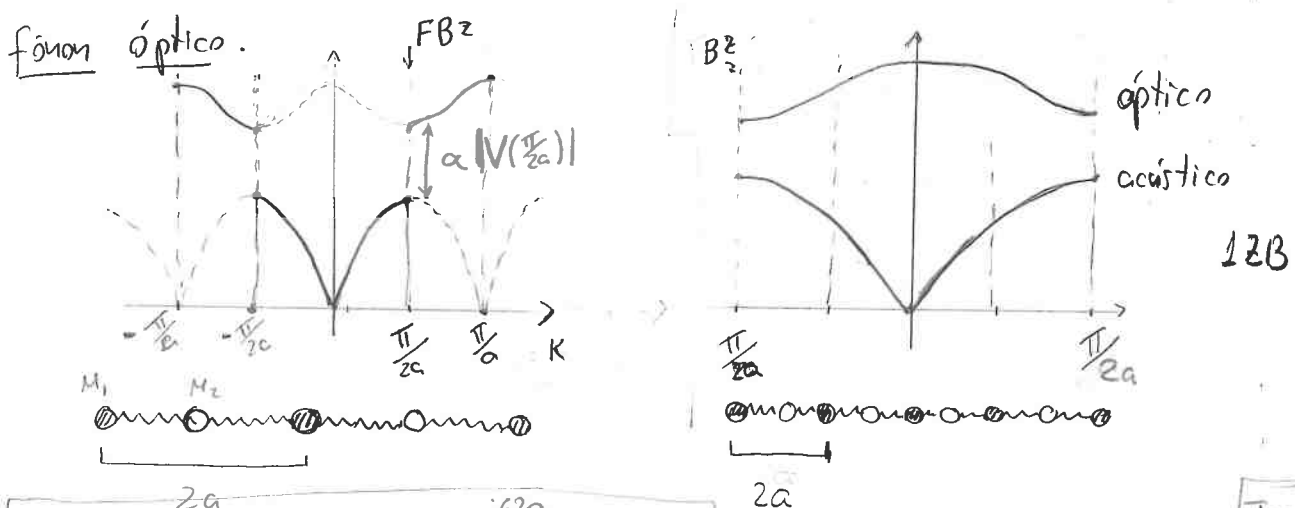 fónon óptico.
FBz
α |V(π/2a)|
-π/a -π/2a π/2a π/a K
M₁ M₂
2a
Bz
óptico
acústico
1ZB
π/2a π/2a
2a